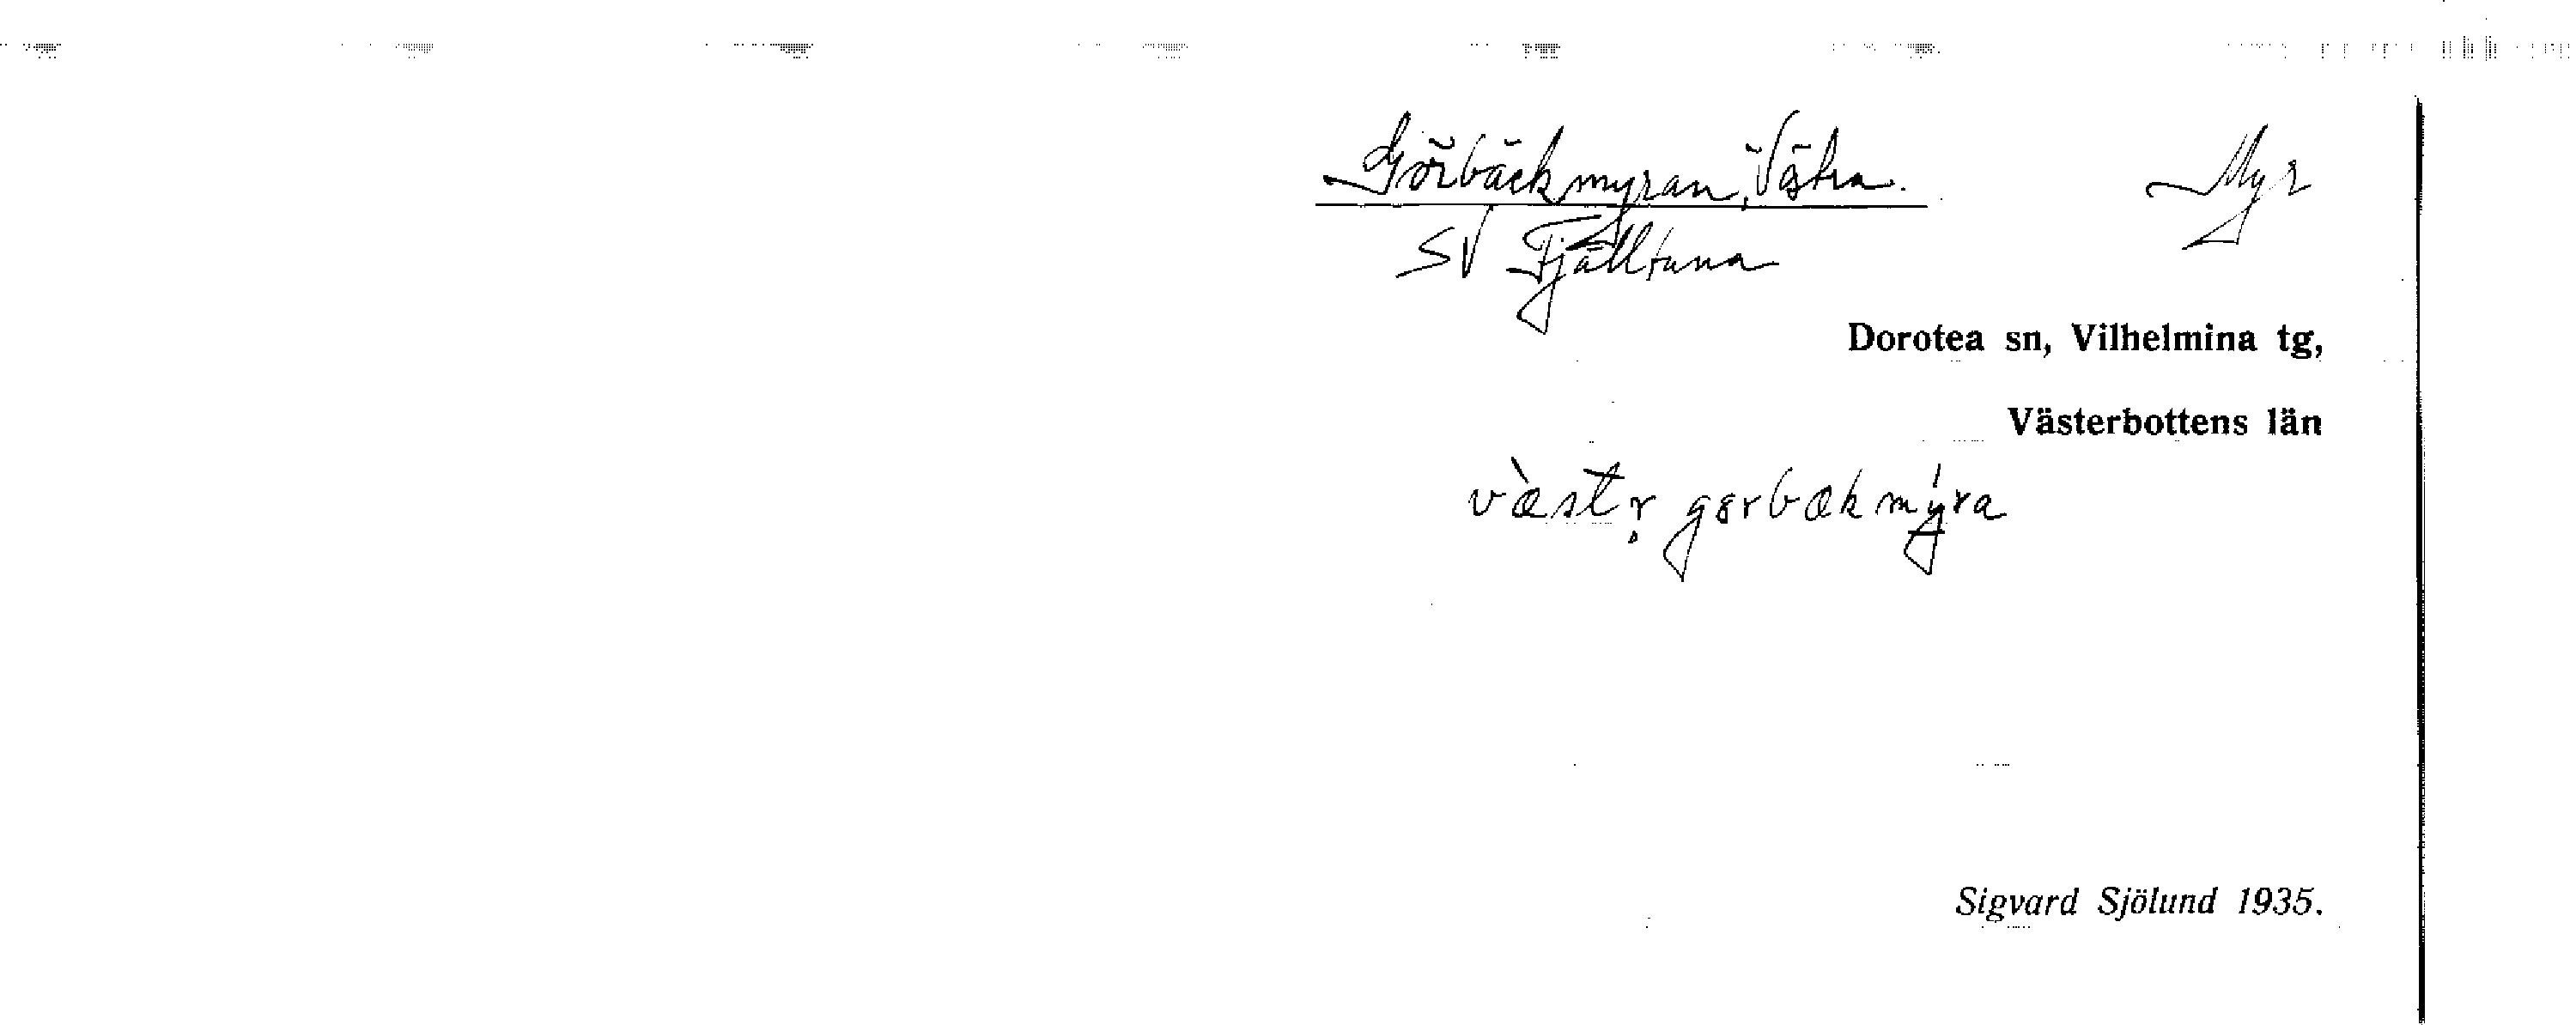 Görbäckmyran, Västra.
Myr
SV Fjälltuna
Dorotea sn, Vilhelmina tg,
Västerbottens län
væ̀str̥ gørbækmýra
Sigvard Sjölund 1935.